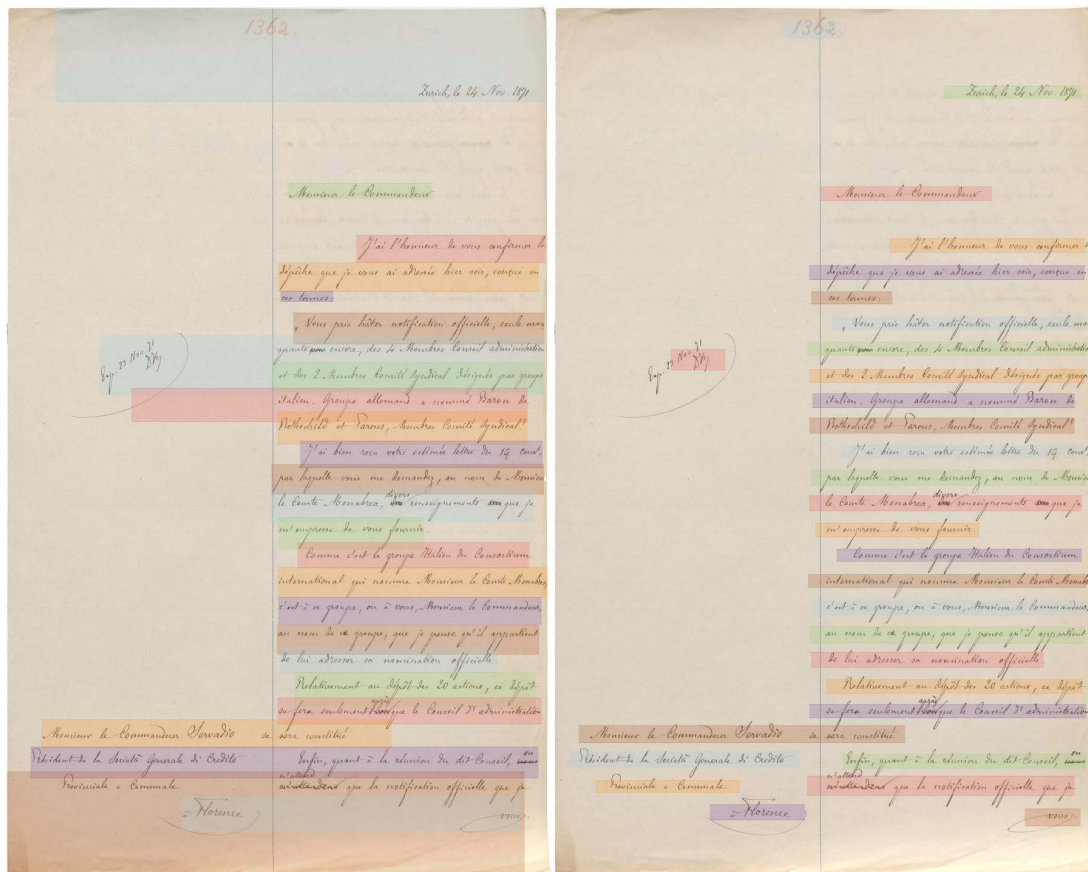 1362.
Zurich, le 24 Nov 1871
Monsieur le Commandeur
J'ai l'honneur de vous confirmer la
dépêche que je vous ai adressée hier soir, conçue en
ces termes:
„Vous prie hâter notification officielle, seule man
quante encore, des 4 Membres Conseil administration
et des 2 Membres Comité Syndical désignés par groupe
italien. Groupe allemand a nommé Baron de
Rothschild et Parcus, Membres Comité Syndical"
Exp. 23 Nov 71
J'ai bien reçu votre estimée lettre du 19 cour^t,
par laquelle vous me demandez, au nom de Monsieur
le Comte Menabrea, divers renseignements que je
m'empresse de vous fournir
Comme c'est le groupe Italien du Consortium
international qui nomme Monsieur le Comte Menabrea
c'est à ce groupe, ou à vous, Monsieur le Commandeur,
au nom de ce groupe, que je pense qu'il appartient
de lui adresser sa nomination officielle
Relativement au dépôt des 20 actions, ce dépôt
se fera seulement après que le Conseil d'administration
sera constitué
Enfin, quant à la réunion du dit Conseil, on
n'attend que la notification officielle que je
vous
Monsieur le Commandeur Servadio
Président de la Società Generale di Credito
Provinciale e Communale
à Florence
1362.
Zurich, le 24 Nov 1871
Monsieur le Commandeur
J'ai l'honneur de vous confirmer l
dépêche que je vous ai adressée hier soir, conçue en
ces termes:
„Vous prie hâter notification officielle, seule man
quante encore, des 4 Membres Conseil administration
et des 2 Membres Comité Syndical désignés par groupe
italien. Groupe allemand a nommé Baron de
Rothschild et Parcus, Membres Comité Syndical"
Exp. 23 Nov 71
J'ai bien reçu votre estimée lettre du 19 cour^t,
par laquelle vous me demandez, au nom de Monsieur
le Comte Menabrea, divers renseignements que je
m'empresse de vous fournir
Comme c'est le groupe Italien du Consortium
international qui nomme Monsieur le Comte Menabrea
c'est à ce groupe, ou à vous, Monsieur le Commandeur,
au nom de ce groupe, que je pense qu'il appartient
de lui adresser sa nomination officielle
Relativement au dépôt des 20 actions, ce dépôt
se fera seulement après que le Conseil d'administration
sera constitué
Enfin, quant à la réunion du dit Conseil, on
n'attend que la notification officielle que je
vous
Monsieur le Commandeur Servadio
Président de la Società Generale di Credito
Provinciale e Communale
à Florence